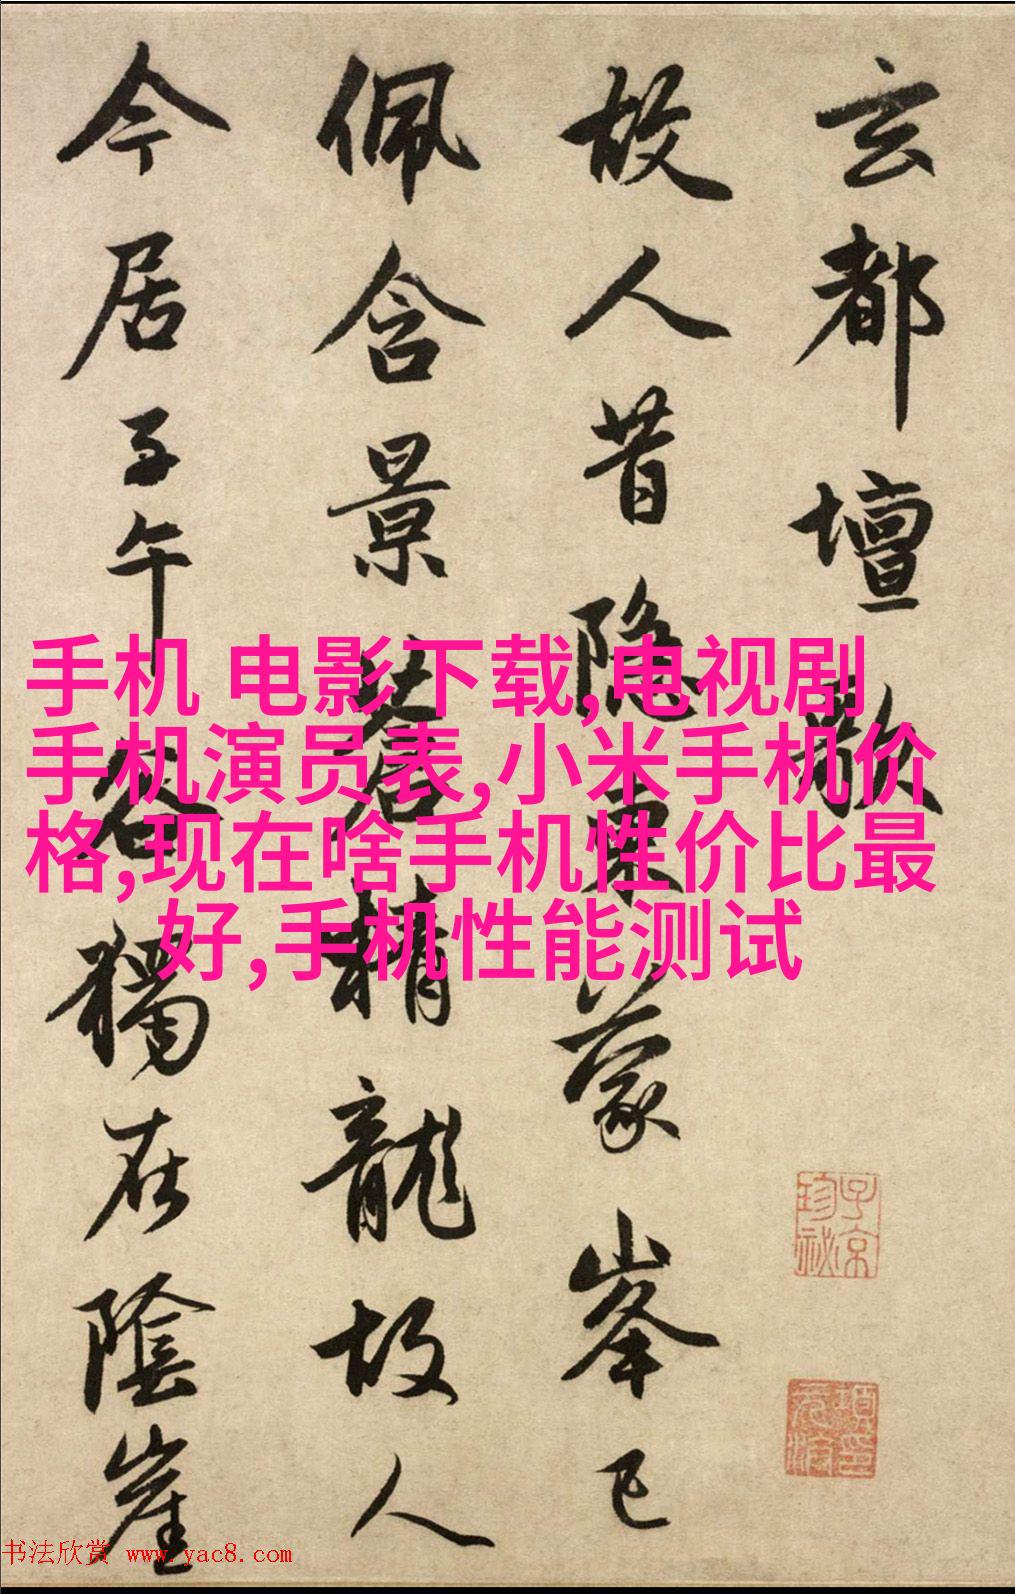 玄都壇歌
故人昔隱東蒙峯已
佩含景蒼精龍故人
今居子午谷獨在陰崖
手机 电影下载,电视剧
手机演员表,小米手机价
格,现在啥手机性价比最
好,手机性能测试
子京珍秘
书法欣赏 www.yac8.com